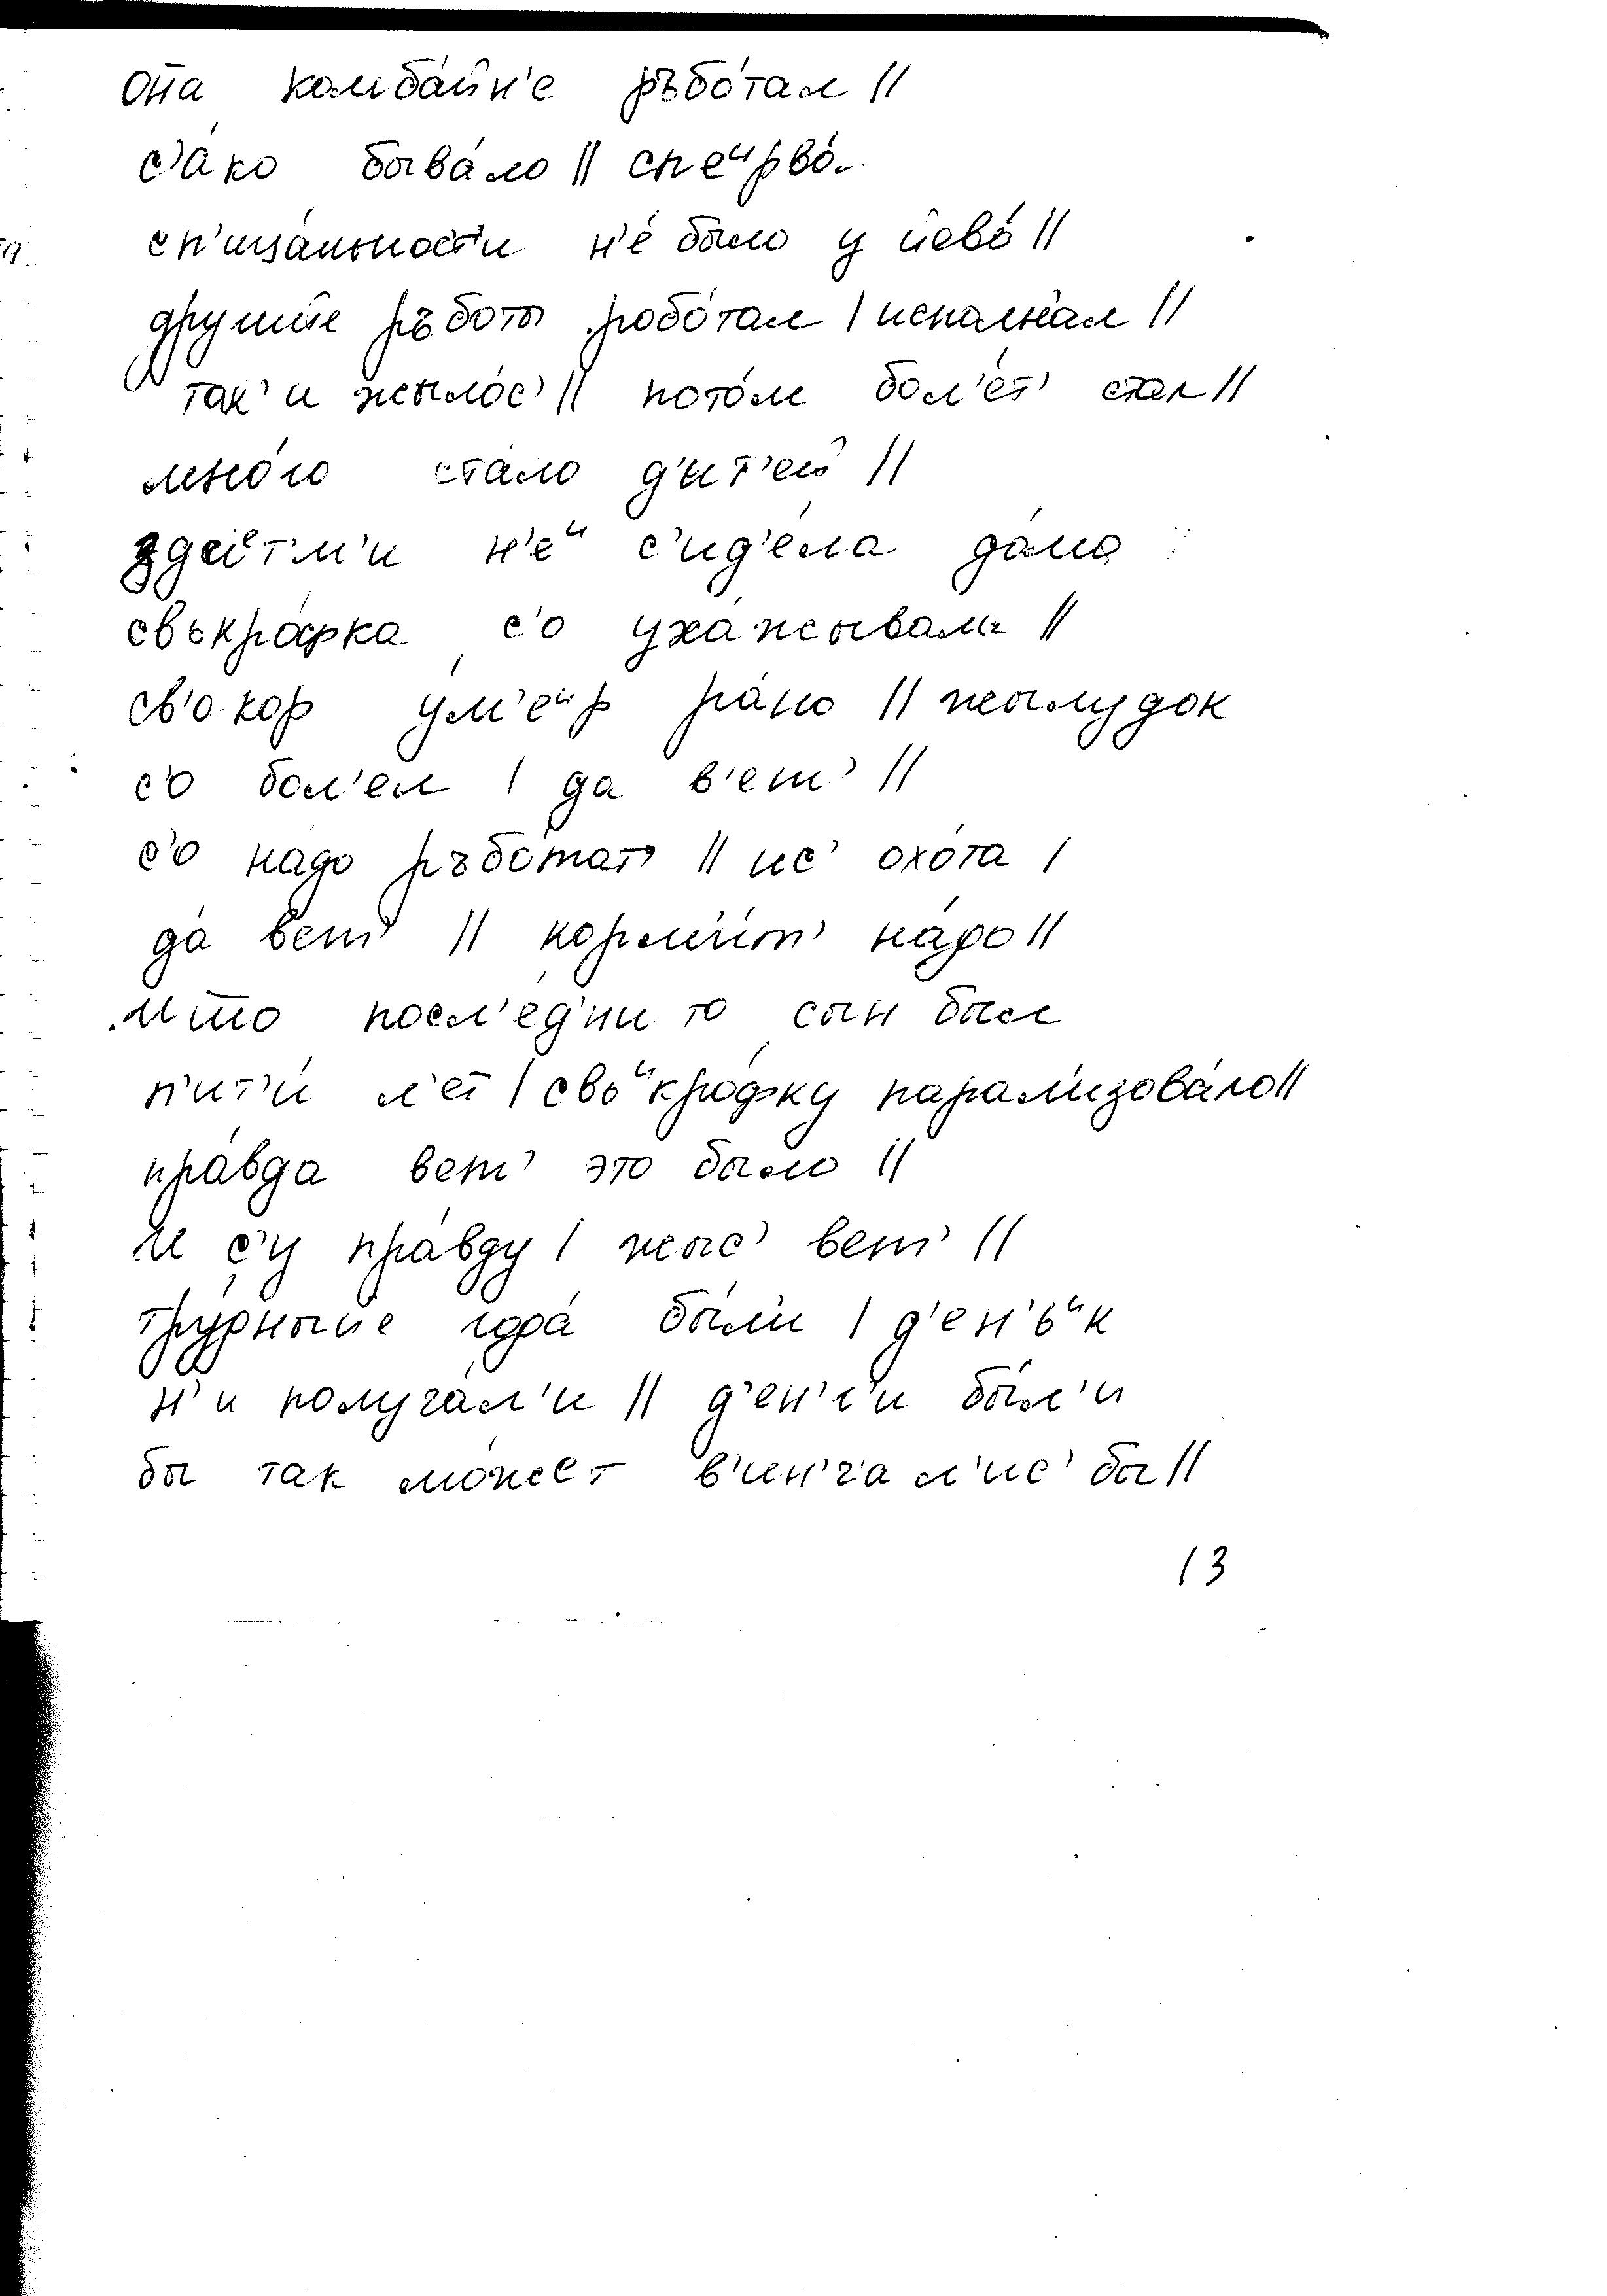 она комба́йн'е ръбо́тал ||
с'а́ко быва́ло || спеирво́
сп'ица́льност'и н'е́ было у йево́ ||
другийе ръботы робо́тал | исполн'ал ||
так'и жыло́с' || пото́м бол'е́т' стал ||
мно́го ста́ло д'ит'ей ||
здет'м'и н'еи с'ид'е́ла до́ма
свькро́фка с'о уха́жывала ||
св'окор у́м'еир ра́но || жылудок
с'о бол'ел | да в'ет' ||
с'о на́до ръбо́тат' || ис' охо́та |
да́ вет' || корм'и́т' на́до ||
И то посл'ед'ни то сын был
п'ит'и́ л'ет | свьикро́фку парал'изова́ло ||
пра́вда вет' это было ||
И с'у пра́вду | жыс' вет' ||
тру́дныйе года́ бы́л'и | д'ен'ьик
н'и получа́л'и || д'ен'г'и бы́л'и
бы так мо́жет в'ин'ча л'ис' бы ||
13